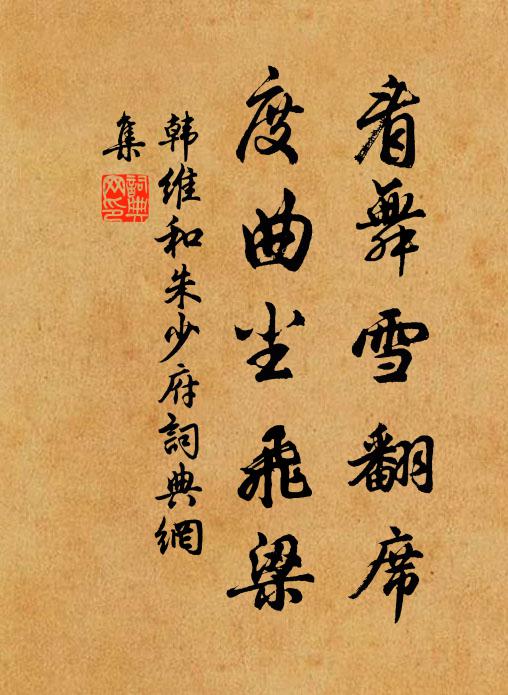 看舞雪翻席
度曲尘飛梁
韩維和朱少府詞典網
集
詞典
网印